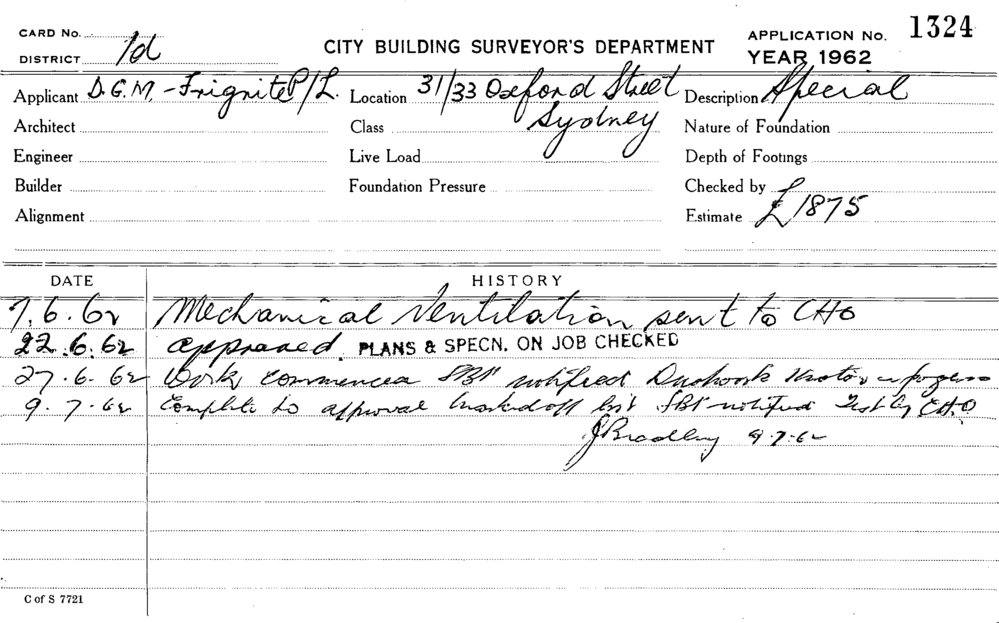 CARD No.
DISTRICT 1d
CITY BUILDING SURVEYOR'S DEPARTMENT
APPLICATION No. 1324
YEAR 1962
Applicant D.G.M. - Frignite P/L. Location 31/33 Oxford Street Description Special
Architect Class Sydney Nature of Foundation
Engineer Live Load Depth of Footings
Builder Foundation Pressure Checked by
Alignment Estimate £1875
DATE HISTORY
7.6.62 Mechanical Ventilation sent to CHO
22.6.62 approved. PLANS & SPECN. ON JOB CHECKED
27.6.62 Work commenced notified
9.7.62 Complete to approval marked off list notified Test by CHO
J Bradley 9.7.62
C of S 7721